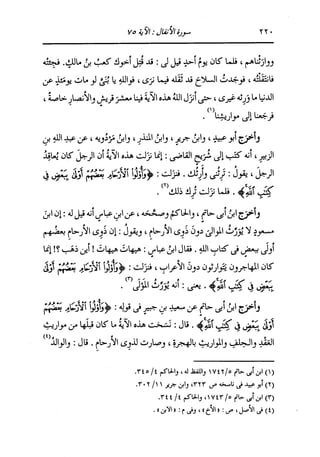 ٢٢٠ سورة الأنفال : الآية ٧٥
ووارثناهم ، فلما كان يوم أحد قيل لى : قد قُتِل أخوك كعبُ بنُ مالكٍ. فجئتُه
فانتقلتُه ، فوجَدتُ السلاحَ قد ثقله فيما نرى ، فواللهِ يا بُنَىَّ لو مات يومئذٍ عن
الدنيا ما ورِثه غيرى ، حتى أنزَل اللهُ هذه الآيةَ فينا معشرَ قريشٍ والأنصارِ خاصةً ،
فرجَعنا إلى مواريثِنا(١).
وأخرَج أبو عبيدٍ ، وابنُ جريرٍ ، وابنُ المنذرِ ، وابنُ مَرْدُويَه ، عن عبدِ اللهِ بنِ
الزبيرِ ، أنه كتَب إلى شُريحٍ القاضى : إنما نزَلت هذه الآيةُ أن الرجلَ كان يُعاقِدُ
الرجلَ ، يقولُ : تَرِثُنى وأَرِثُك . فنزلت : ﴿وَأُوْلُوا۟ الْأَرْحَامِ بَعْضُهُمْ أَوْلَىٰ بِبَعْضٍ فِى
كِتَابِ اللَّهِ﴾ . فلما نزَلت تُرِك ذلك(٢).
وأخرَج ابنُ أبى حاتمٍ ، والحاكمُ وصحَّحه ، عن ابنِ عباسٍ أنه قيل له : إن ابنَ
مسعودٍ لا يُوَرِّثُ الموالىَ دونَ ذوِى الأرحامِ ، ويقولُ : إن ذَوِى الأرحامِ بعضُهم
أولى ببعضٍ فى كتابِ اللهِ . فقال ابنُ عباسٍ : هيهاتَ هيهاتَ ! أين ذهَب ؟! إنما
كان المهاجرون يتوارثون دونَ الأعرابِ ، فنزَلت : ﴿وَأُوْلُوا۟ الْأَرْحَامِ بَعْضُهُمْ أَوْلَىٰ
بِبَعْضٍ فِى كِتَابِ اللَّهِ﴾ . يعنى : أنه يُوَرَّثُ المَوْلَى(٣).
وأخرَج ابنُ أبى حاتمٍ عن سعيدِ بنِ جبيرٍ فى قولِه : ﴿وَأُوْلُوا۟ الْأَرْحَامِ بَعْضُهُمْ
أَوْلَىٰ بِبَعْضٍ فِى كِتَابِ اللَّهِ﴾ . قال : نسَخت هذه الآيةُ ما كان قبلَها من مواريثِ
العَقْدِ والحِلْفِ والمواريثِ بالهجرةِ ، وصارت لذوِى الأرحامِ . قال : والوالدُ(٤)
(١) ابن أبى حاتم ٥/ ١٧٤٢ واللفظ له ، والحاكم ٤/ ٣٤٥.
(٢) أبو عبيد فى ناسخه ص ٣٢٣، وابن جرير ١١/ ٣٠٢.
(٣) ابن أبى حاتم ٥/ ١٧٤٣، والحاكم ٤/ ٣٤٤.
(٤) فى الأصل ، ص : «الأخ» ، وفى م : «الابن» .